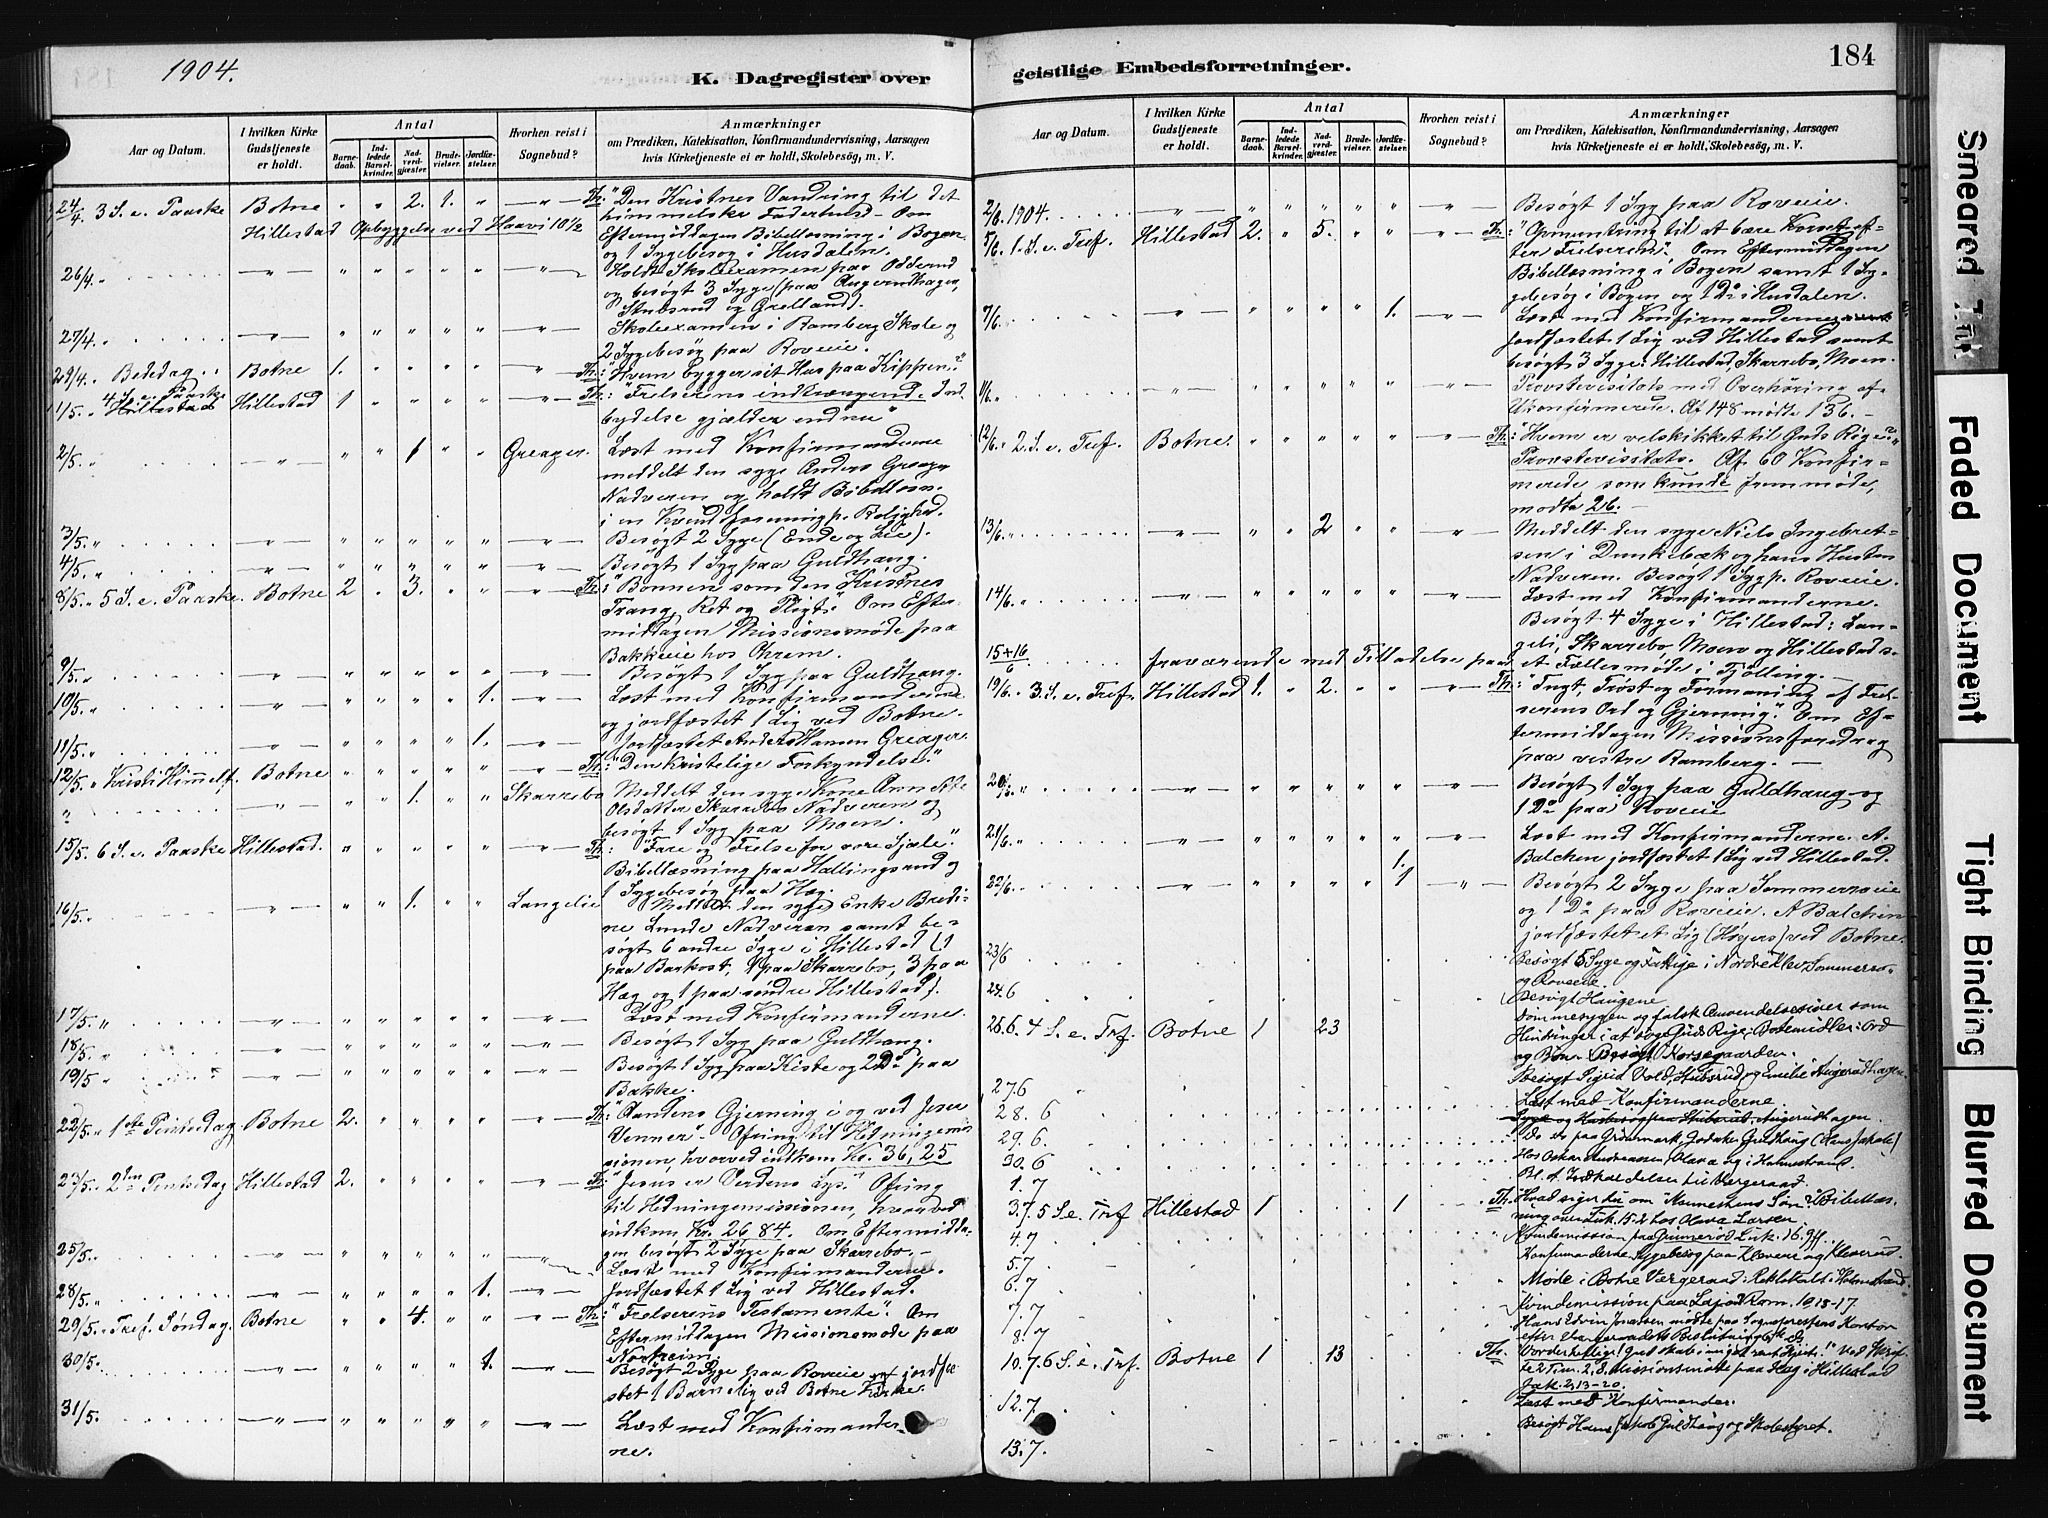 1904.
K. Dagregister over
Aar og Datum.
I hvilken Kirke Gudstjeneste er holdt.
Antal
Barnedaab.
Indledede Barselkvinder.
Nadverdgjæster.
Brudevielser.
Jordfæstelser.
Hvorhen reist i Sognebud?
Anmærkninger
om Prædiken, Katekisation, Konfirmandundervisning, Aarsagen
hvis Kirketjeneste ei er holdt, Skolebesøg, m. V.
24/4 3 S. e. Paaske Botne " " 2. 1. " —"— Th: "Den Kristnes Vandring til det
himmelske Faderhus" – Om
Hillestad Opbyggelse ved Haavi 10½ Eftermiddagen Bibellæsning i Bogen
og 1 Sygebesøg i Husdalen.
26/4. " —"— " " " " " —"— Holdt Skoleexamen paa Odderud
og besøgt 3 Syge (paa Angerudhagen,
Stubsrud og Grelland).
27/4. —"— " " " " " —"— Skoleexamen i Ramberg Skole og
2 Sygebesøg paa Roveie.
29/4. " Bededag Botne 1. " " " " " Th: "Hvem bygger sit Hus paa Klippen?"
1/5. " 4 S. e. Paaske Hillestad Hillestad 1 " " " " —"— Th: "Frelserens indtrængende Ind-
bydelse gjælder endnu"
2/5. " —"— " " 1 " " Greager. Læst med Konfirmanderne
meddelt den syge Anders Greager
Nadveren og holdt Bibellæsn.
i en Kvindeforening p. Rolighed.
3/5. " —"— " " " " " —"— Besøgt 2 Syge (Ende og Lie).
4/5. " —"— " " " " " —"— Besøgt 1 Syg paa Guldhaug.
8/5. " 5 S. e. Paaske. Botne 2 " 3. " " —"— Th: "Bønnen som den Kristnes
Trang, Ret og Pligt". Om Efter-
middagen Missionsmøde paa
Bakkeeie hos Ohrem.
9/5. " —"— " " " " " —"— Besøgt 1 Syg paa Guldhaug.
10/5. " —"— " " " " 1. —"— Læst med Konfirmanderne
og jordfæstet 1 Lig ved Botne.
11/5. " —"— " " " " 1. —"— Jordfæstet Anders Hansen Greager.
12/5. " Kristi Himmelf. Botne " " " " " —"— Th: "Den kristelige Forkyndelse."
" —"— " " 1. " " Skarrebo Meddelt den syge Kone Ann Ste
Olsdatter Skarrebo Nadveren og
besøgt 1 Syg paa Moen.
15/5. 6 S. e. Paaske Hillestad. " " " " " —"— Th: "Fare og Frelse for vore Sjæle."
Bibellæsning paa Hallingsrud og
1 Sygebesøg paa Hæg.
16/5. " —"— " " 1. " " Langelie Meddelt den syge Enke Bredi-
ne Lunde Nadveren samt be-
søgt 6 andre Syge i Hillestad (1
paa Barkost, 1 paa Skarrebo, 3 paa
Hæg og 1 paa søndre Hillestad).
17/5. " —"— " " " " " —"— Læst med Konfirmanderne.
18/5. —"— " " " " " —"— Besøgt 1 Syg paa Guldhaug.
19/5 " —"— " " " " " —"— Besøgt 1 Syg paa Kiste og 2 Do paa
Bakke.
22/5. " 1ste Pintsedag Botne 2. " " " " —"— Th: "Aandens Gjerning i og ved Jesu
Venner". Ofring til Hedningemis-
sionen, hvorved indkom Kr. 36,25
23/5. 2den Pintsedag Hillestad 2. " " " " —"— Th: "Jesus er Verdens Lys." Ofring
til Hedningemissionen, hvorved
indkom Kr. 26,84. Om Eftermidda-
gen besøgt 2 Syge paa Skarrebo. –
25/5. —"— " " " " " —"— Læst med Konfirmanderne.
28/5. " —"— " " " " 1. —"— Jordfæstet 1 Lig ved Hillestad.
29/5. " Tref. Søndag. Botne " " 4. " " —"— Th: "Frelserens Testamente". Om
Eftermiddagen Missionsmøde paa
Nordheim.
30/5. —"— " " " " 1. —"— Besøgt 2 Syge paa Roveie og jordfæ-
stet 1 Barnelig ved Botne Kirke.
31/5. —"— " " " " " —"— Læst med Konfirmander-
ne.
geistlige Embedsforretninger.
184
Aar og Datum.
I hvilken Kirke Gudstjeneste er holdt.
Antal
Barnedaab.
Indledede Barselkvinder.
Nadverdgjæster.
Brudevielser.
Jordfæstelser.
Hvorhen reist i Sognebud?
Anmærkninger
om Prædiken, Katekisation, Konfirmandundervisning, Aarsagen
hvis Kirketjeneste ei er holdt, Skolebesøg, m. V.
2/6. 1904. —"— " " " " " —"— Besøgt 1 Syg paa Roveie.
5/6. 1. S. e. Tref. Hillestad 2. " 5. " " —"— Th: "Opmuntring til at bære Korset ef-
ter Frelseren". Om Eftermiddagen
Bibellæsning i Bogen samt 1 Sy-
gebesøg i Bogen og 1 Do i Husdalen.
7/6. —"— " " " " 1. —"— Læst med Konfirmanderne
jordfæstet 1 Lig ved Hillestad samt
besøgt 3 Syge: Hillestad, Skarrebo, Moen.
11/6. " —"— " " " " " —"— Provstevisitats med Overhøring af
Ukonfirmerede. Af 148 mødte 136. –
12/6. " 2. S. e. Tref. Botne. " " " " " —"— Th: "Hvem er velskikket til Guds Rige?"
Provstevisitats. Af 60 Konfir-
merede som kunde fremmøde,
mødte 26. –
13/6. " —"— " " 2 " " —"— Meddelt den syge Niels Ingebret-
sen i Dunkebæk og hans Hustru
Nadveren. Besøgt 1 Syg p. Roveie.
14/6. " —"— " " " " " —"— Læst med Konfirmanderne.
Besøgt 4 Syge i Hillestad: Lan-
geli, Skarrebo, Moen og Hillestad s.
15+16/6 fraværende med Tilladelse paa et Fællesmøde i Tjølling. –
19/6. " 3. S. e. Tref. Hillestad 1. " 2. " " —"— Th: "Tugt, Trøst og Formaning af Frel-
serens Ord og Gjerning". Om Ef-
termiddagen Missionsforedrag
paa vestre Ramberg. –
20/6. " —"— " " " " " —"— Besøgt 1 Syg paa Guldhaug og
1 Do paa Roveie
21/6. " —"— " " " " 1. —"— Læst med Konfirmanderne. A.
Balchen jordfæstet 1 Lig ved Hillestad.
22/6. —"— " " " " 1 —"— Besøgt 2 Syge paa Sommerroeie
og 1 Do paa Roveie. A Balchen
jordfæstet et Lig (Høyers) ved Botne.
23/6 Besøgt 5 Syge og Fattige i Nordre Klev, Sommerro-
og Roveie.
24.6 Besøgt Haugene
26.6. 4 S. e. Trf. Botne 1 23 Dommesygen og falsk Omvendelsesiver som
Hindringer i at søge Guds Rige; Botemidler: Ord
og Bøn. Besøgt Korsegaarden.
27.6 Besøgt Sigrid Vold, Stubsrud og Emilie Angerudhagen.
28.6 Læst med Konfirmanderne.
29.6.
30.6 Hos Oskar Andreassen, Olava og i Holmestrand.
1.7
3.7. 5 S. e. Trf Hillestad 1 1 Th: "Hvad siger du om Menneskens Søn?" Bibellæs-
ning over Luk. 15.2 hos Olava Larsen.
4.7 Kvindemission paa Gunnerød Luk. 16.9ff.
5.7 Konfirmanderne. Sygebesøg paa Kleveie og Kleverud.
6.7 Møde i Botne Værgeraad:
7.7 Kvindemission paa Rom. 10 13-17.
8.7 Hans Edvin Josefsen mødte paa Sognepræstens Kontor
efter Værgeraadets Beslutning
10.7. 6 S. e. Trf. Botne 1 13 Th. missionsmøte paa Hæg i Hillestad
Jak. 2, 13–20.
12.7. Læst med Konfirmander.
13.7. Besøgt Hans Jakob Guldhaug og Skolestyret.
Smeared Ink
Faded Document
Tight Binding
Blurred Document